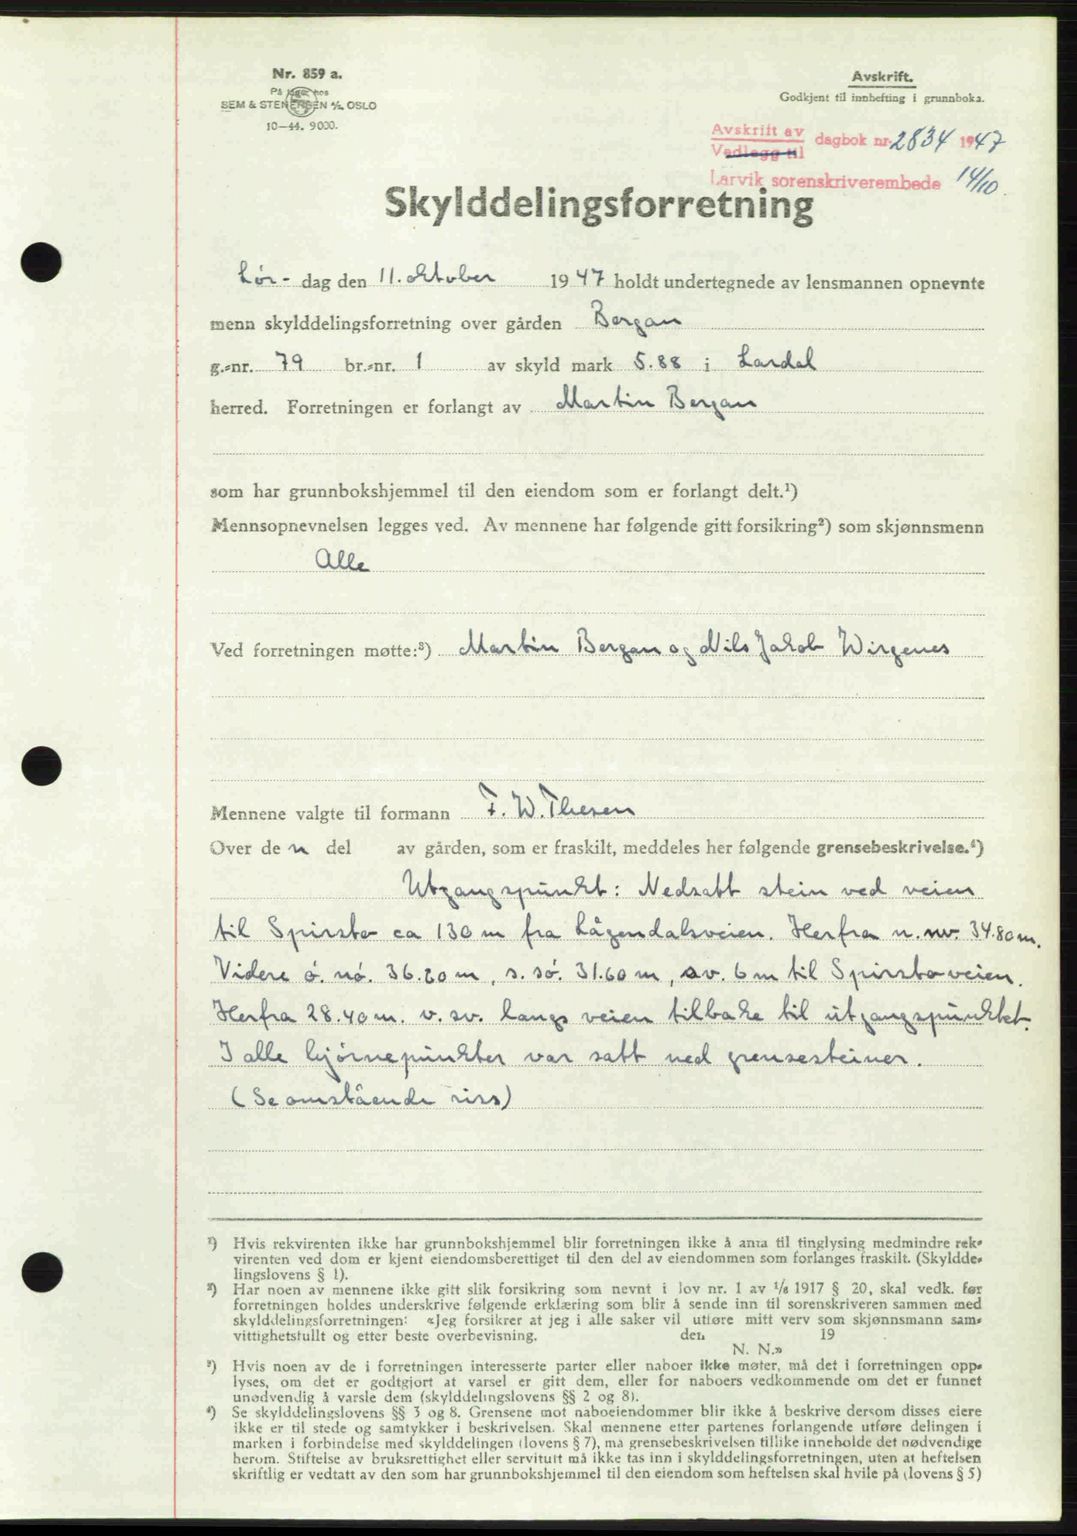 Nr. 859 a.
På lager hos
SEM & STENERSEN A/S, OSLO
10—44. 9000.
Avskrift.
Godkjent til innhefting i grunnboka.
Avskrift av
Vedlegg til
dagbok nr. 2834 1947
Larvik sorenskriverembede 14/10.
Skylddelingsforretning
Lør- dag den 11. oktober 1947 holdt undertegnede av lensmannen opnevnte
menn skylddelingsforretning over gården Bergan
g.-nr. 79 br.-nr. 1 av skyld mark 5.88 i Lardal
herred. Forretningen er forlangt av Martin Bergan
som har grunnbokshjemmel til den eiendom som er forlangt delt.¹)
Mennsopnevnelsen legges ved. Av mennene har følgende gitt forsikring²) som skjønnsmenn
Alle
Ved forretningen møtte:³) Martin Bergan og Nils Jakob Wirgenes
Mennene valgte til formann F. W. Thesen
Over den del av gården, som er fraskilt, meddeles her følgende grensebeskrivelse.⁴)
Utgangspunkt: Nedsatt stein ved veien
til Spirsto ca 130 m fra Lågendalsveien. Herfra n. nv. 34.80 m.
Videre ø. nø. 36.20 m, s. sø. 31.60 m, sv. 6 m til Spirstoveien.
Herfra 28.40 m. v. sv. langs veien tilbake til utgangspunktet.
I alle hjørnepunkter var satt ned grensesteiner.
(Se omstående riss)
¹) Hvis rekvirenten ikke har grunnbokshjemmel blir forretningen ikke å anta til tinglysing medmindre rek-
virenten ved dom er kjent eiendomsberettiget til den del av eiendommen som forlanges fraskilt. (Skyldde-
lingslovens § 1).
²) Har noen av mennene ikke gitt slik forsikring som nevnt i lov nr. 1 av 1/6 1917 § 20, skal vedk. før
forretningen holdes underskrive følgende erklæring som blir å sende inn til sorenskriveren sammen med
skylddelingsforretningen: «Jeg forsikrer at jeg i alle saker vil utføre mitt verv som skjønnsmann sam-
vittighetsfullt og etter beste overbevisning. den 19
N. N.»
³) Hvis noen av de i forretningen interesserte parter eller naboer ikke møter, må det i forretningen opp-
lyses, om det er godtgjort at varsel er gitt dem, eller for naboers vedkommende om det er funnet
unødvendig å varsle dem (skylddelingslovens §§ 2 og 8).
⁴) Se skylddelingslovens §§ 3 og 8. Grensene mot naboeiendommer blir ikke å beskrive dersom disses eiere
ikke er til stede og samtykker i beskrivelsen. Skal mennene etter partenes forlangende utføre delingen i
marken i forbindelse med skylddelingen (lovens § 7), må grensebeskrivelsen tillike inneholde det nødvendige
herom. Stiftelse av bruksrettighet eller servitutt må ikke tas inn i skylddelingsforretningen, uten at heftelsen
skriftlig er vedtatt av den som har grunnbokshjemmel til den eiendom som heftelsen skal hvile på (lovens § 5)